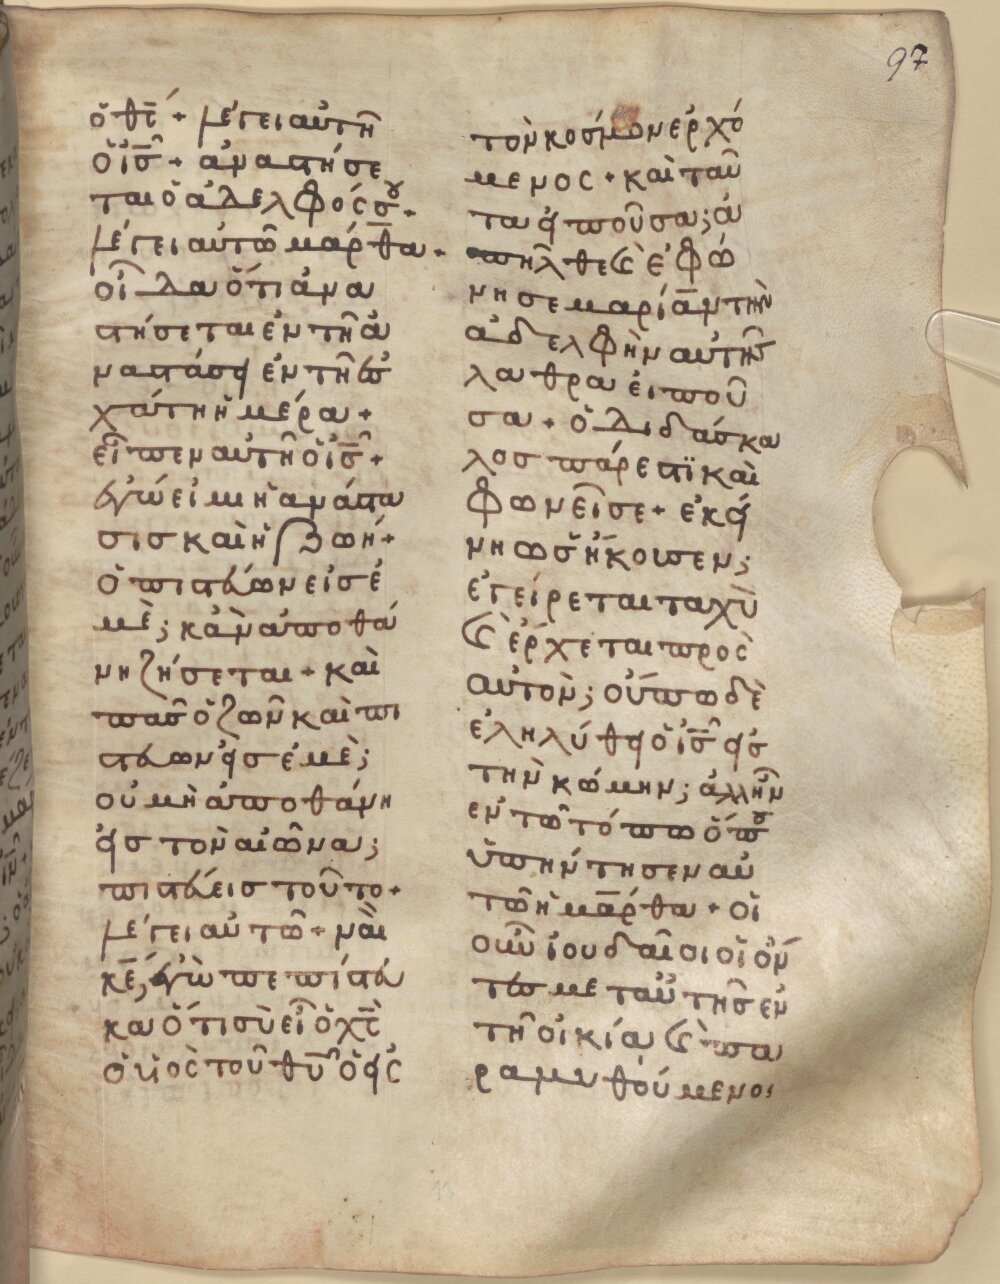 97
ὁ θ̅ς̅ + λέγει αὐτῆ
ὁ ι̅ς̅ + ἀναστήσε
ται ὁ ἀδελφός σου +
λέγει αὐτῶ μάρθα +
οἶδα ὅτι ἀνα
στήσεται ἐν τῆ ἀ
ναστάσει ἐν τῆ ἐσ
χάτη ἡμέρα +
εἶπεν αὐτῆ ὁ ι̅ς̅ +
ἐγώ εἰμι ἡ ἀνάστα
σισ καὶ ἡ ζωή +
ὁ πιστεύων εἰσ ἐ
μὲ; κἀν ἀποθά
νη ζήσεται + καὶ
πασ ὁ ζῶν καὶ πι
στεύων εἰσ ἐμὲ;
οὐ μὴ ἀποθάνη
εἰσ τὸν αἰῶνα;
πιστεύεισ τοῦτο +
λέγει αὐτῶ + ναὶ
κ̅ε̅, ἐγὼ πεπίστευ
κα ὅτι σὺ εἶ ὁ χ̅ς̅
ὁ υἱὸς τοῦ θ̅υ̅ ὁ εἰς
τὸν κοσμον ἐρχό
μενος + καὶ ταῦ
τα εἰποῦσα; ἀ
πῆλθε καὶ ἐφώ
νησε μαρίαν τὴν
ἀδελφὴν αὐτῆσ
λαθρα εἰποῦ
σα + ὁ διδάσκα
λοσ πάρεστι καὶ
φωνεῖ σε + ἐκεί
νη ὡσ ἤκουσεν;
ἐγείρεται ταχὺ
καὶ ἐρχεται πρὸς
αὐτὸν; οὔπω δὲ
ἐληλύθει ὁ ι̅ς̅ εἰς
τὴν κώμην; ἀλλ' ἦν
ἐν τῶ τόπω ὅπου
ὑπήντησεν αὐ
τῶ ἡ μάρθα + οἱ
οὖν ἰουδαῖοι οἱ ὄν
τεσ μετ' αὐτῆσ ἐν
τῆ οἰκία καὶ πα
ραμυθούμενοι